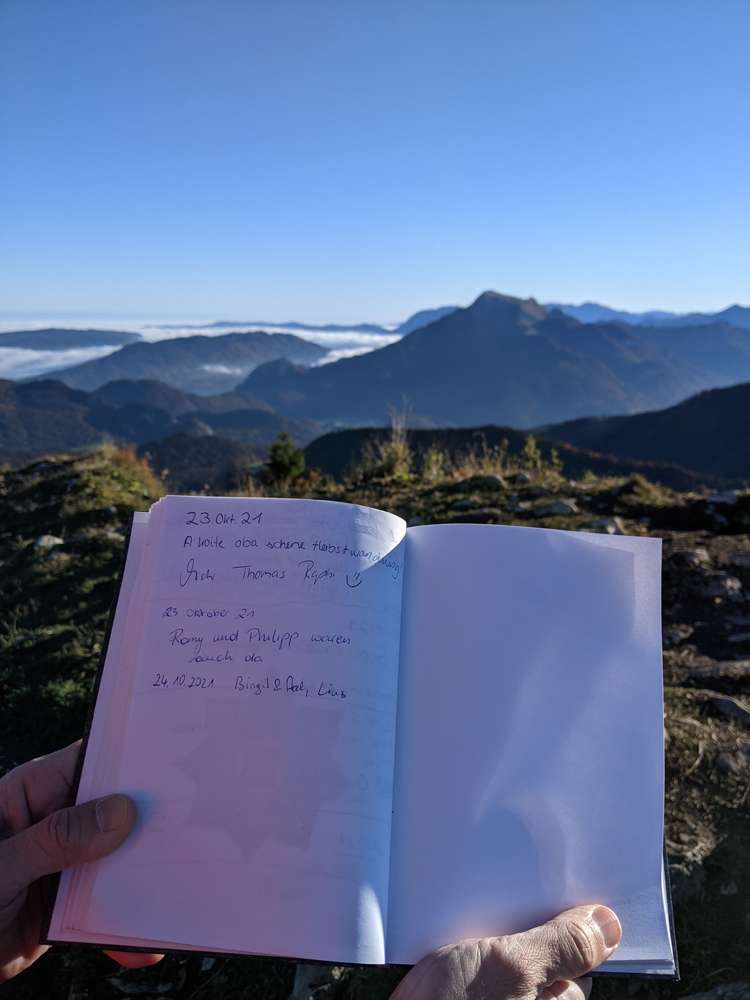 23 Okt. 21
A koite oba schene Herbstwanderung!
Thomas
23 Oktober 21
Romy und Philipp waren
auch da
24.10.2021 Birgit &